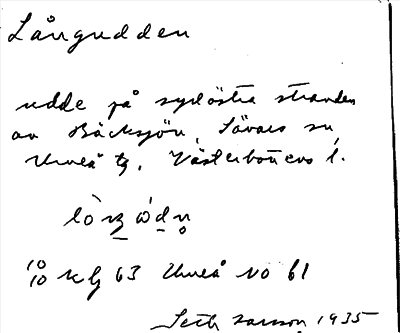 Långudden
udde på sydöstra stranden
av Bäcksjön, Sävars sn,
Umeå tg, Västerbottens l.
10/10 klj 63 Umeå NO 61
Seth Larsson 1935